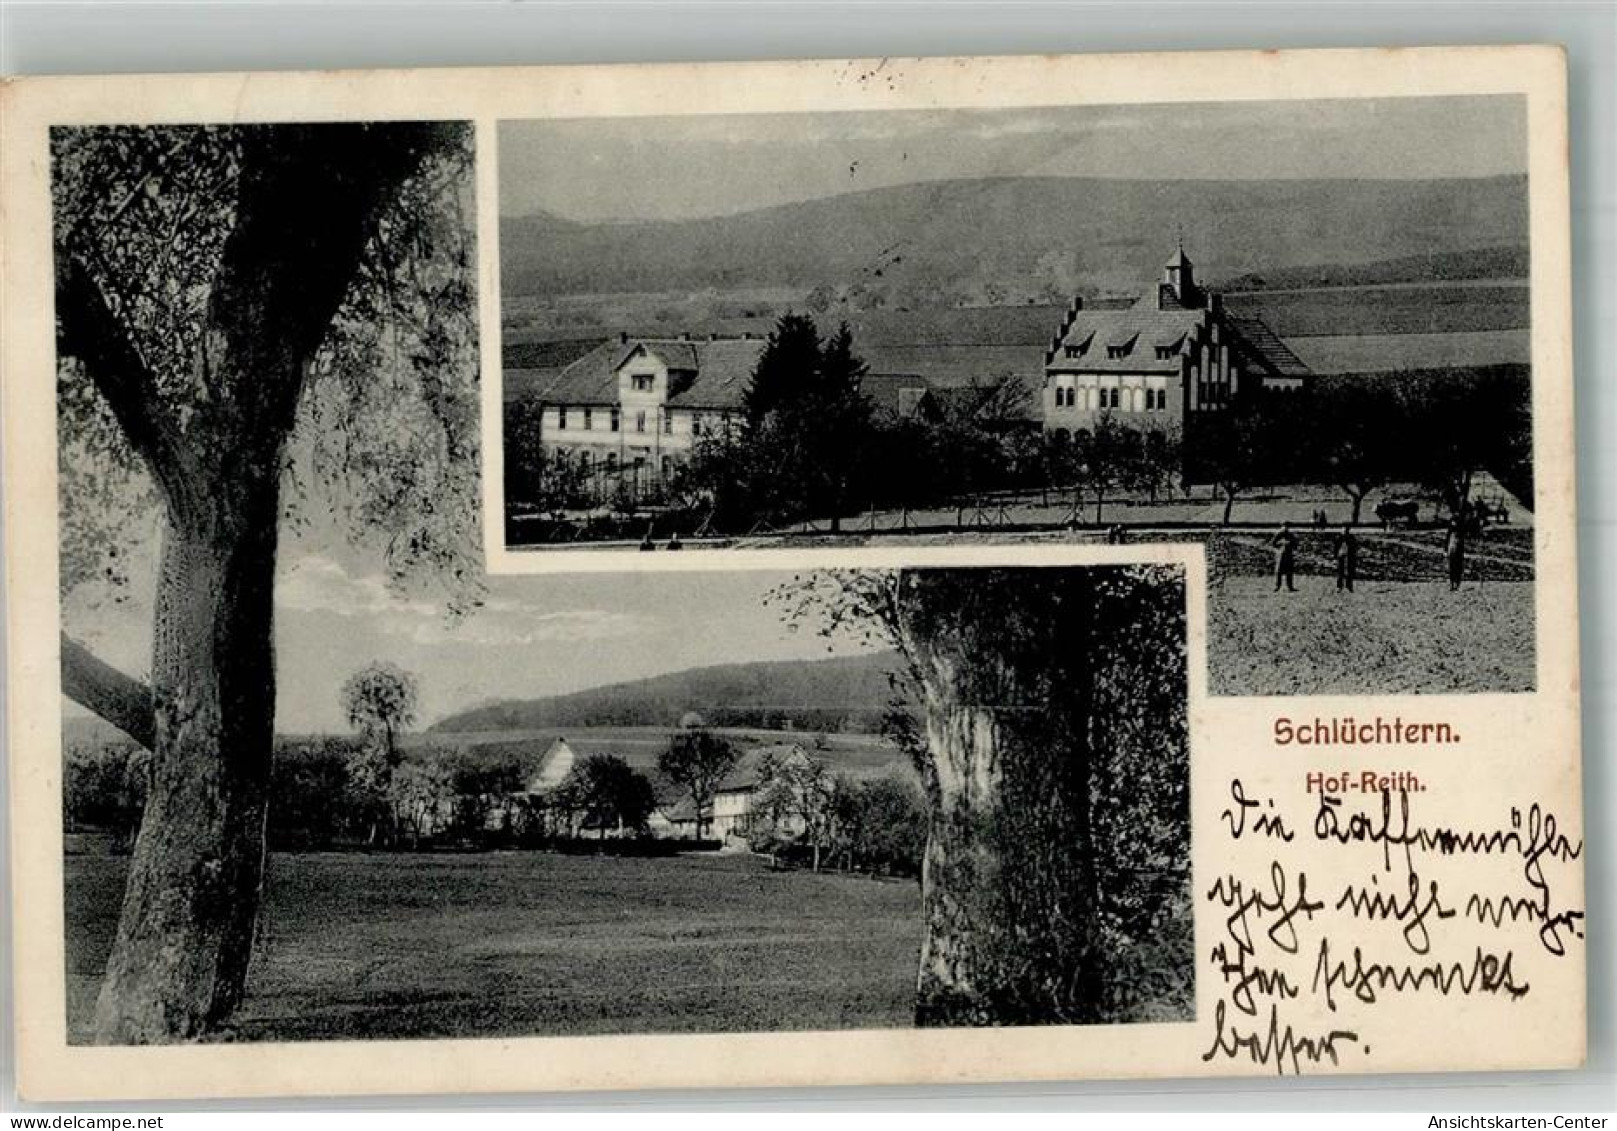 Schlüchtern.
Hof-Reith.
Die Kaffeemühle
geht nicht mehr.
Thee schmeckt
besser.
Ansichtskarten-Center
oldthing.de